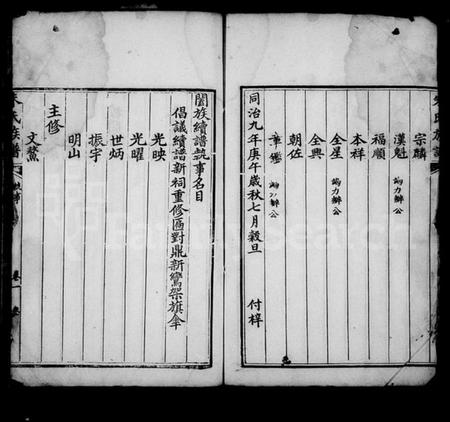 宗麟
漢魁 協力辦公
福順
本祥
全星 協力辦公
全興
朝佐
華鑑 協力辦公
同治九年庚午歲秋七月穀旦 付梓
闔族續譜執事名目
倡議續譜新祠重修匾對鼎新鸞架旗傘
光映
光曜
世炳
振宇
明山
主修
文鰲
氏族譜
卷一